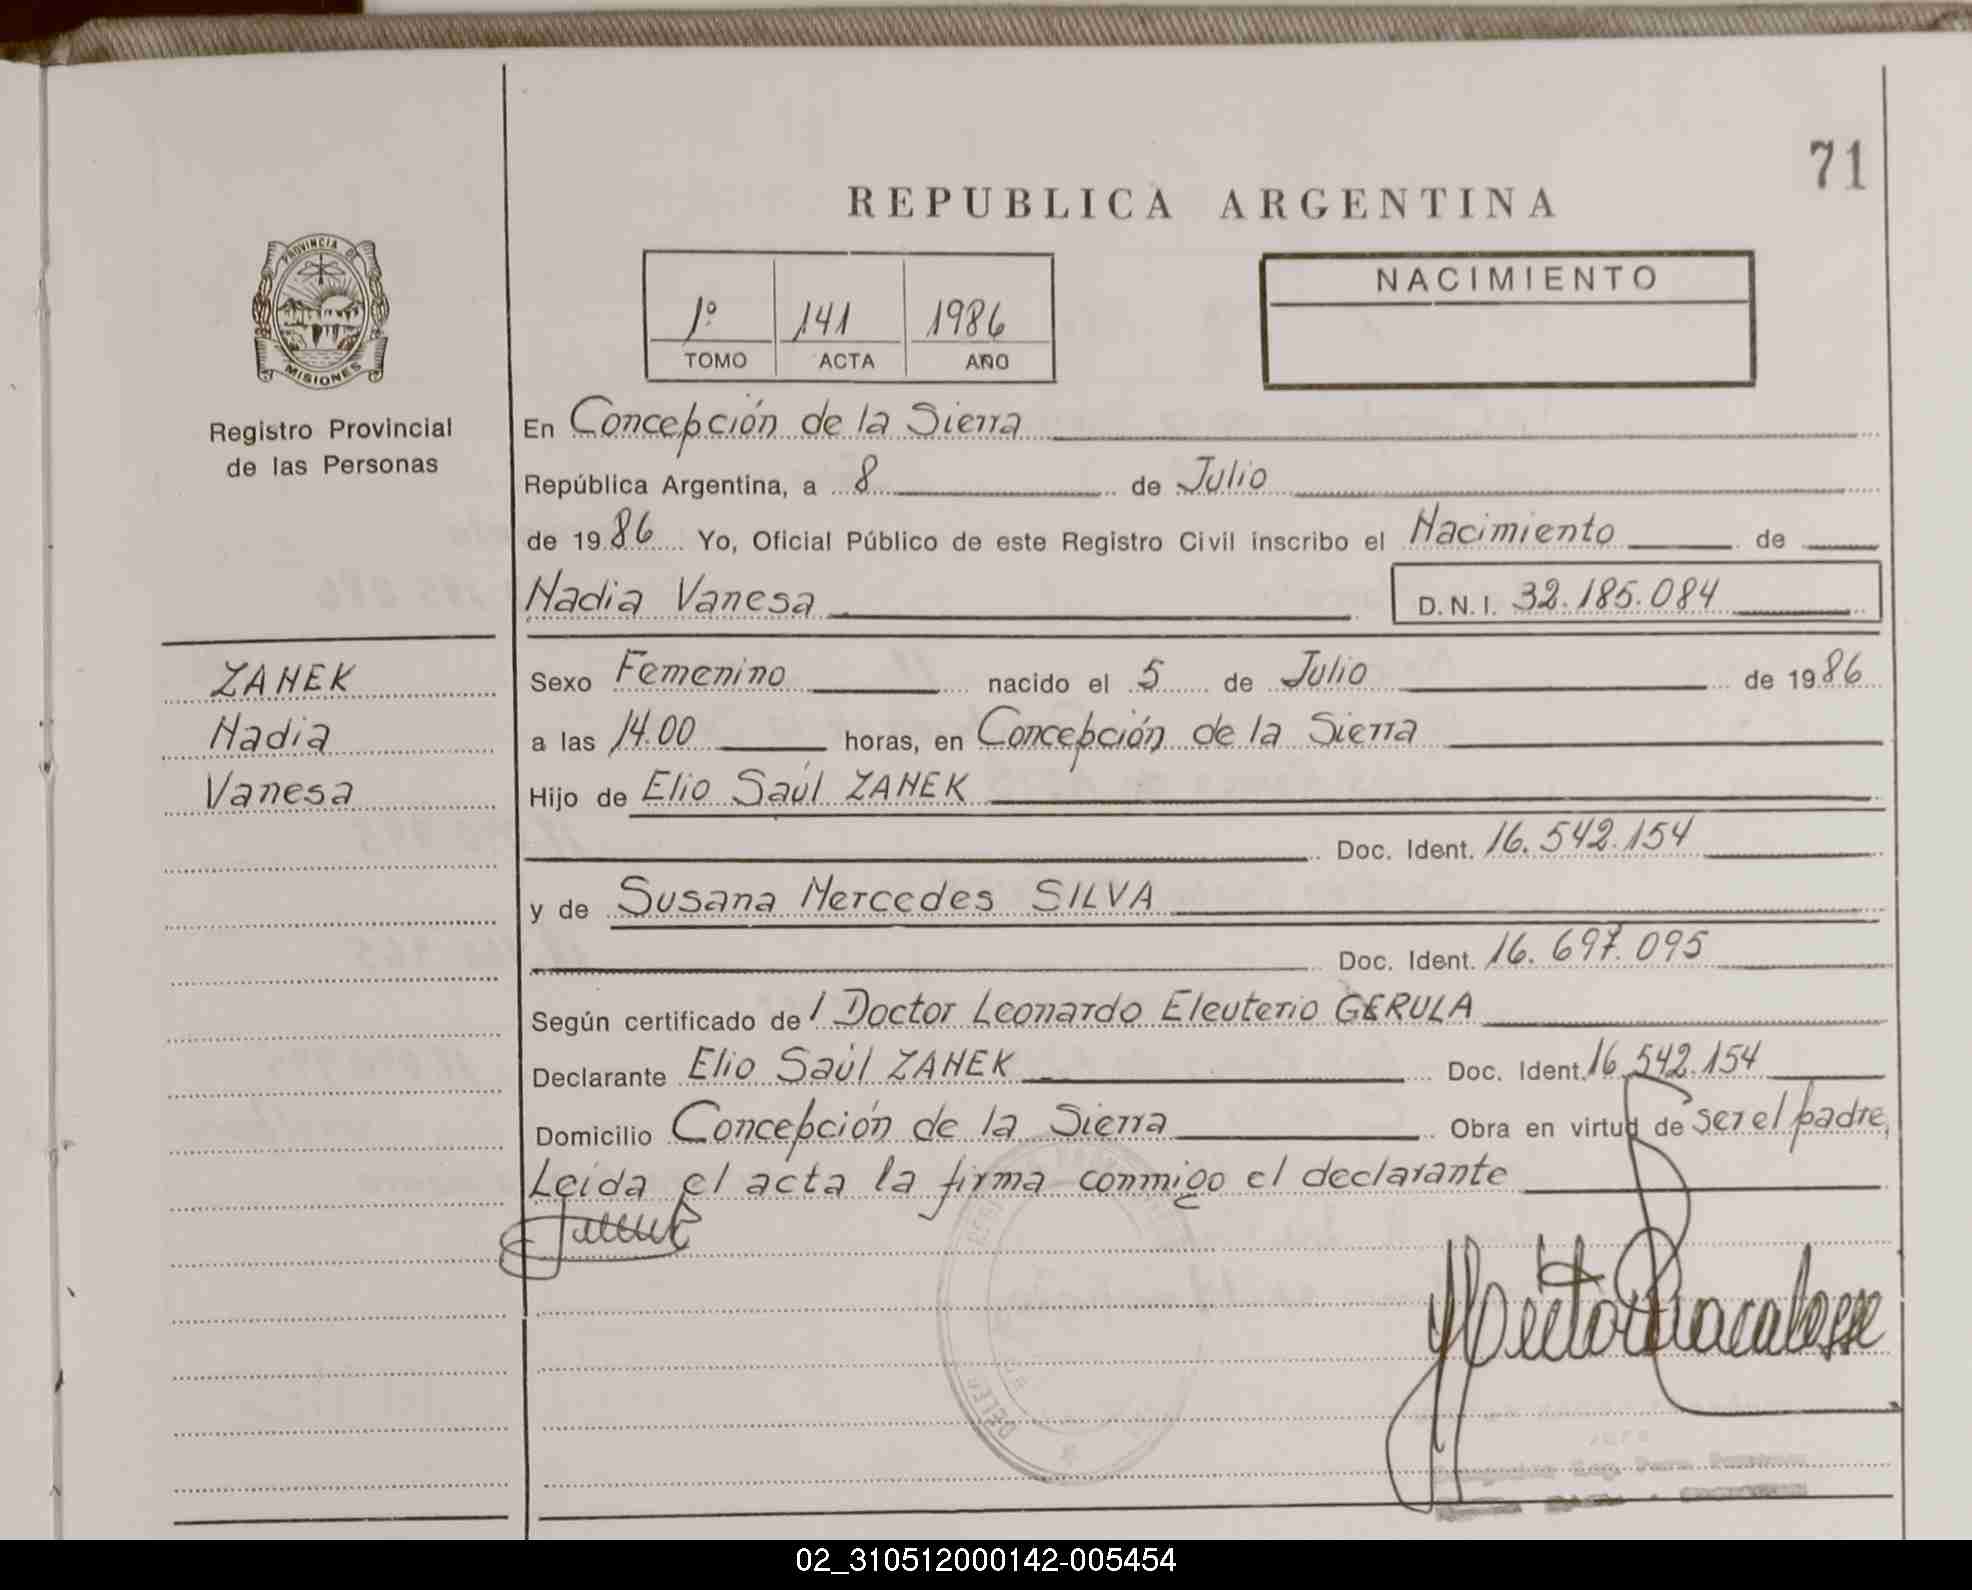 71
REPUBLICA ARGENTINA
PROVINCIA DE
MISIONES
Registro Provincial
de las Personas
1º 141 1986
TOMO ACTA AÑO
NACIMIENTO
En Concepción de la Sierra
República Argentina, a 8 de Julio
de 1986 Yo, Oficial Público de este Registro Civil inscribo el Nacimiento de
Nadia Vanesa D.N.I. 32.185.084
ZANEK
Nadia
Vanesa
Sexo Femenino nacido el 5 de Julio de 1986
a las 14.00 horas, en Concepción de la Sierra
Hijo de Elio Saúl ZANEK
Doc. Ident. 16.542.154
y de Susana Mercedes SILVA
Doc. Ident. 16.697.095
Según certificado de l Doctor Leonardo Eleuterio GERULA
Declarante Elio Saúl ZANEK Doc. Ident. 16.542.154
Domicilio Concepción de la Sierra Obra en virtud de ser el padre,
Leída el acta la firma conmigo el declarante
02_310512000142-005454